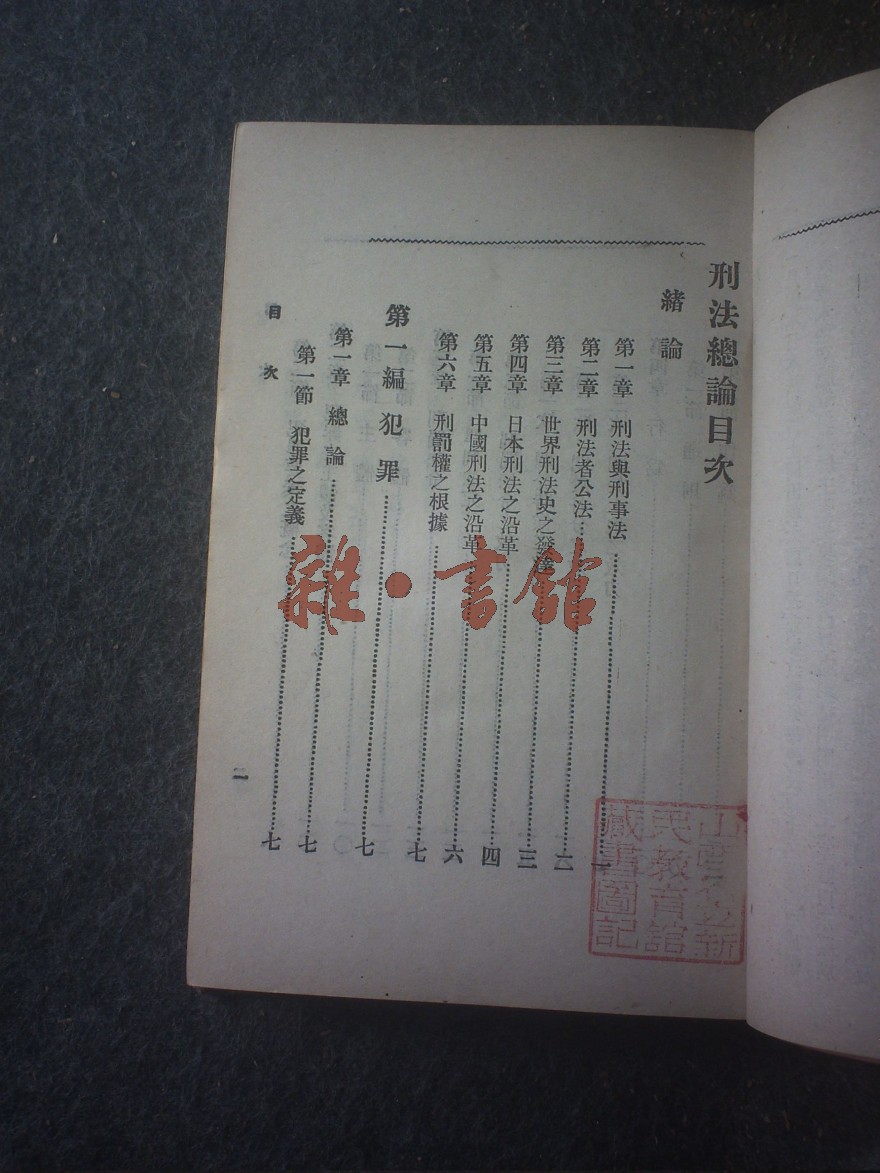 刑法總論目次
緒論
第一章 刑法與刑事法……一
第二章 刑法者公法……二
第三章 世界刑法史之發達……三
第四章 日本刑法之沿革……四
第五章 中國刑法之沿革……六
第六章 刑罰權之根據……七
第一編 犯罪……七
第一章 總論……七
第一節 犯罪之定義……七
目次
雜·書館
民教育館
藏書圖記